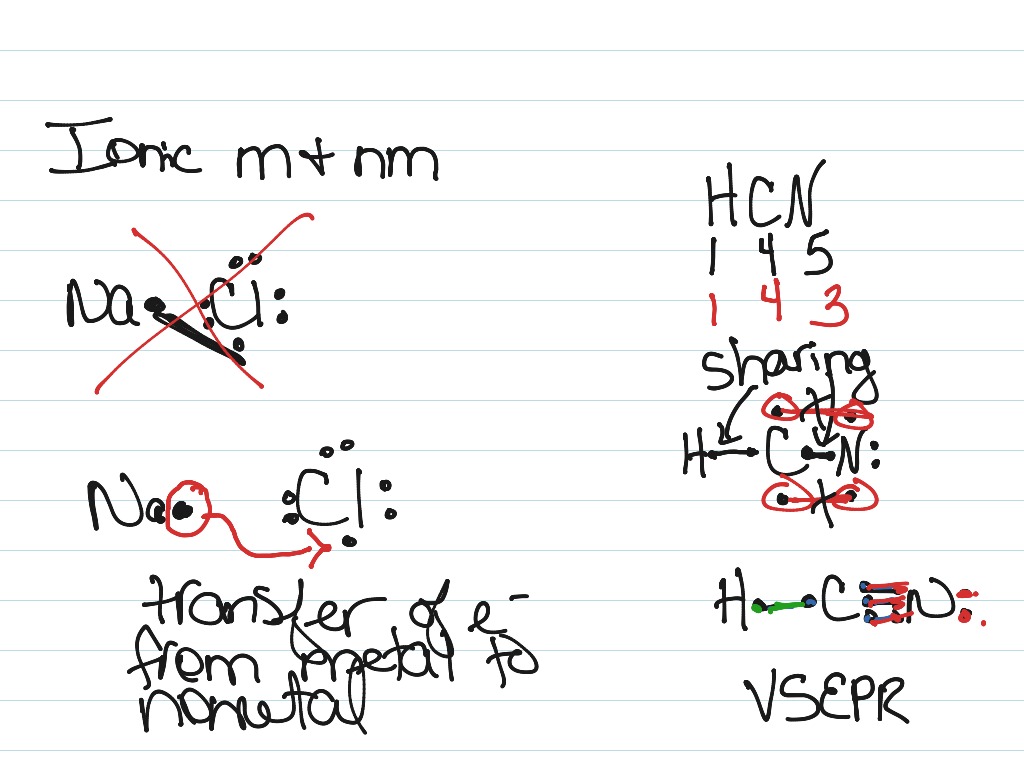 Ionic m + nm
Na Cl
Na Cl
transfer of e-
from metal to
nonmetal
HCN
1 4 5
1 4 3
sharing
H C N
H C≡N
VSEPR